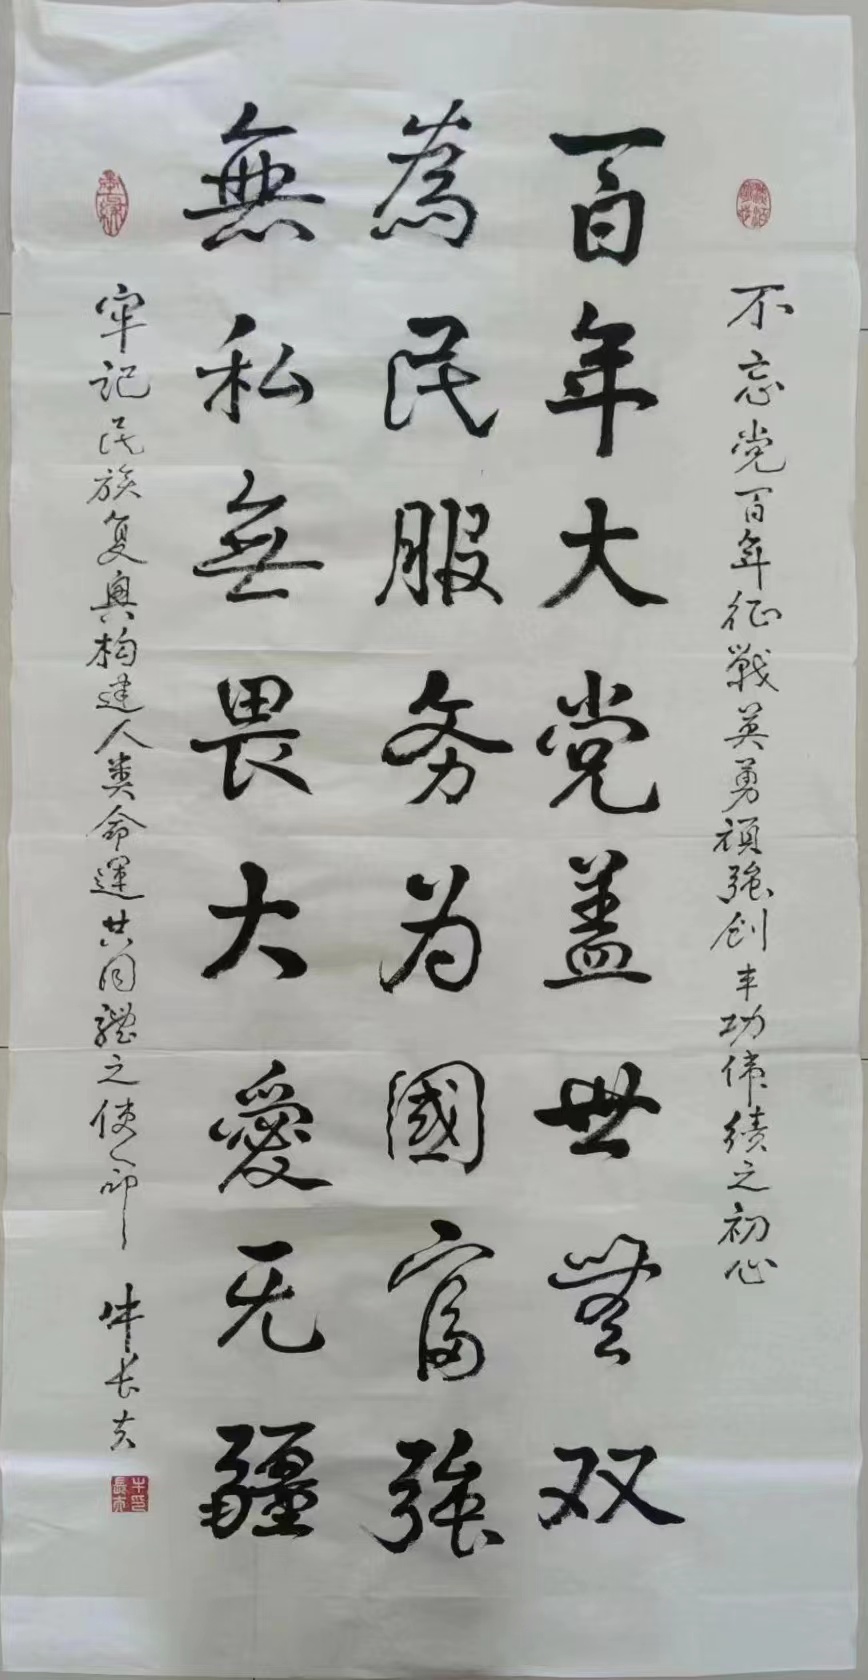 不忘党百年征戰英勇頑強创丰功伟績之初心
百年大党盖世無双
為民服务为國富強
無私無畏大愛无疆
牢记民族复興构建人类命運共同體之使命
牛长